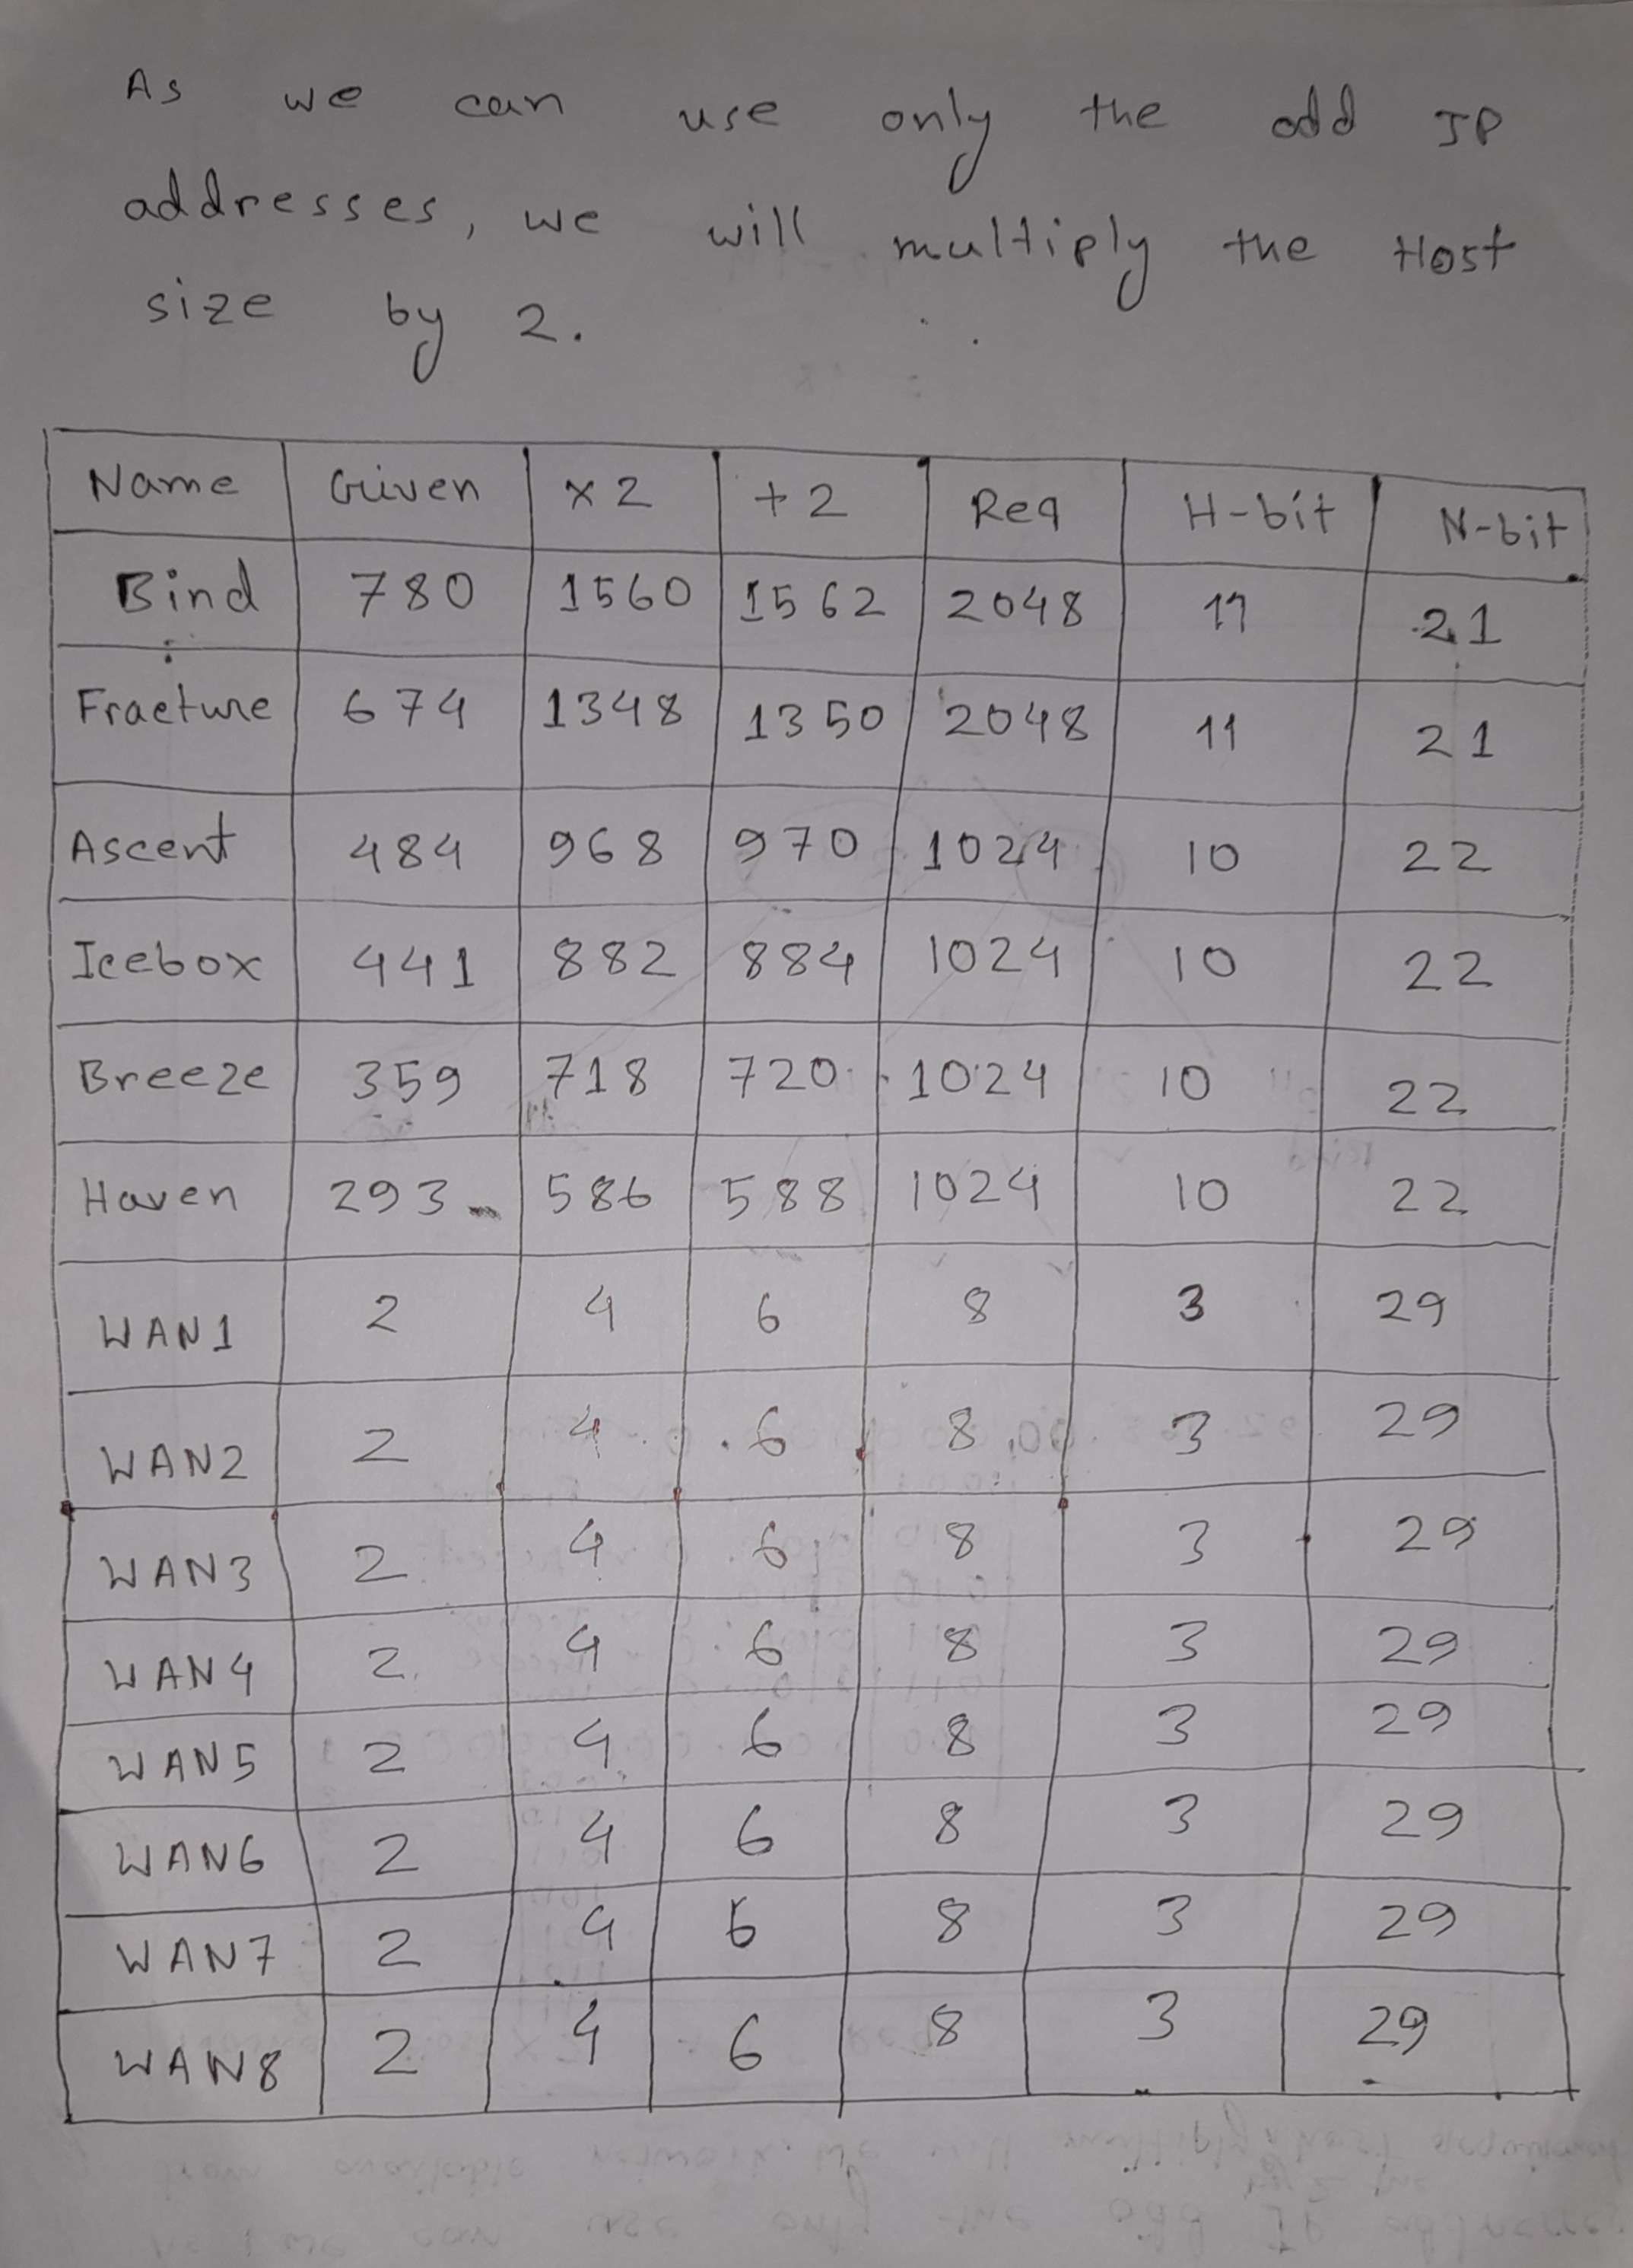 As we can use only the odd IP
addresses, we will multiply the Host
size by 2.
Name Given x2 +2 Req H-bit N-bit
Bind 780 1560 1562 2048 11 21
Fracture 674 1348 1350 2048 11 21
Ascent 484 968 970 1024 10 22
Icebox 441 882 884 1024 10 22
Breeze 359 718 720 1024 10 22
Haven 293 586 588 1024 10 22
WAN1 2 4 6 8 3 29
WAN2 2 4 6 8 3 29
WAN3 2 4 6 8 3 29
WAN4 2 4 6 8 3 29
WAN5 2 4 6 8 3 29
WAN6 2 4 6 8 3 29
WAN7 2 4 6 8 3 29
WAN8 2 4 6 8 3 29